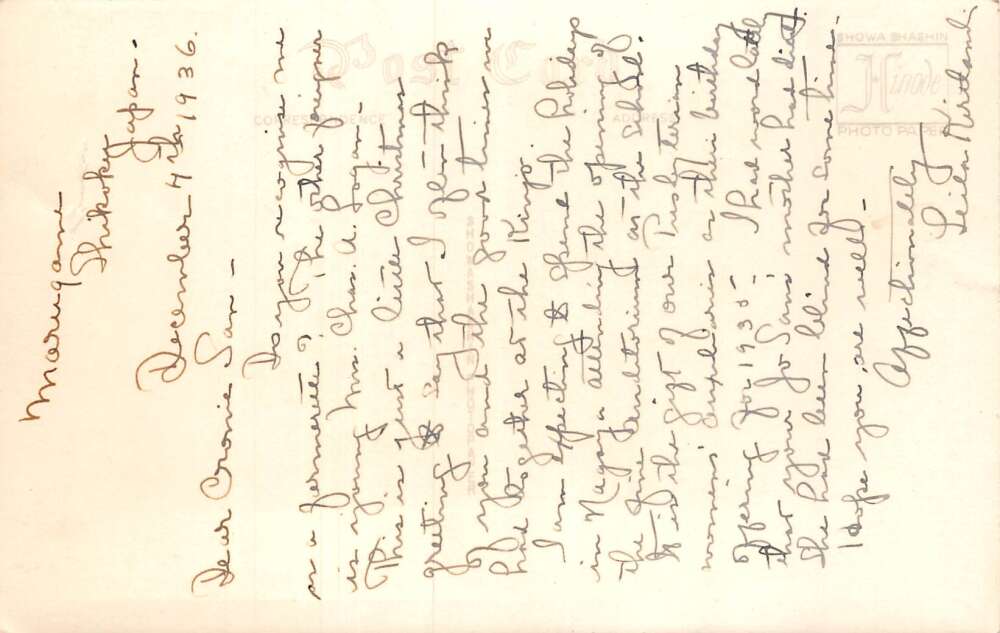 Marugame
Shikoku
Japan.
December 4th 1936.
Dear Cronie San –
Do you recognize me
as a farmerette? The other foreigner
is young Mrs. Chas. A. Logan –
This is just a little Christmas
greeting to say that I often think
of you and the good times we
had together at the Kinjo.
I am expecting to spend the holidays
in Nagoya attending the opening of
the fine auditorium at the school.
It is the gift of our Presbyterian
women's auxiliaries as their birthday
offering for 1935 – I had word lately
that your Jo San's mother had died.
She had been blind for some time –
I hope you are well –
Affectionately
Leila Kirtland.
Post Card
CORRESPONDENCE
ADDRESS
SHOWA SHASHIN
Hinode
PHOTO PAPER